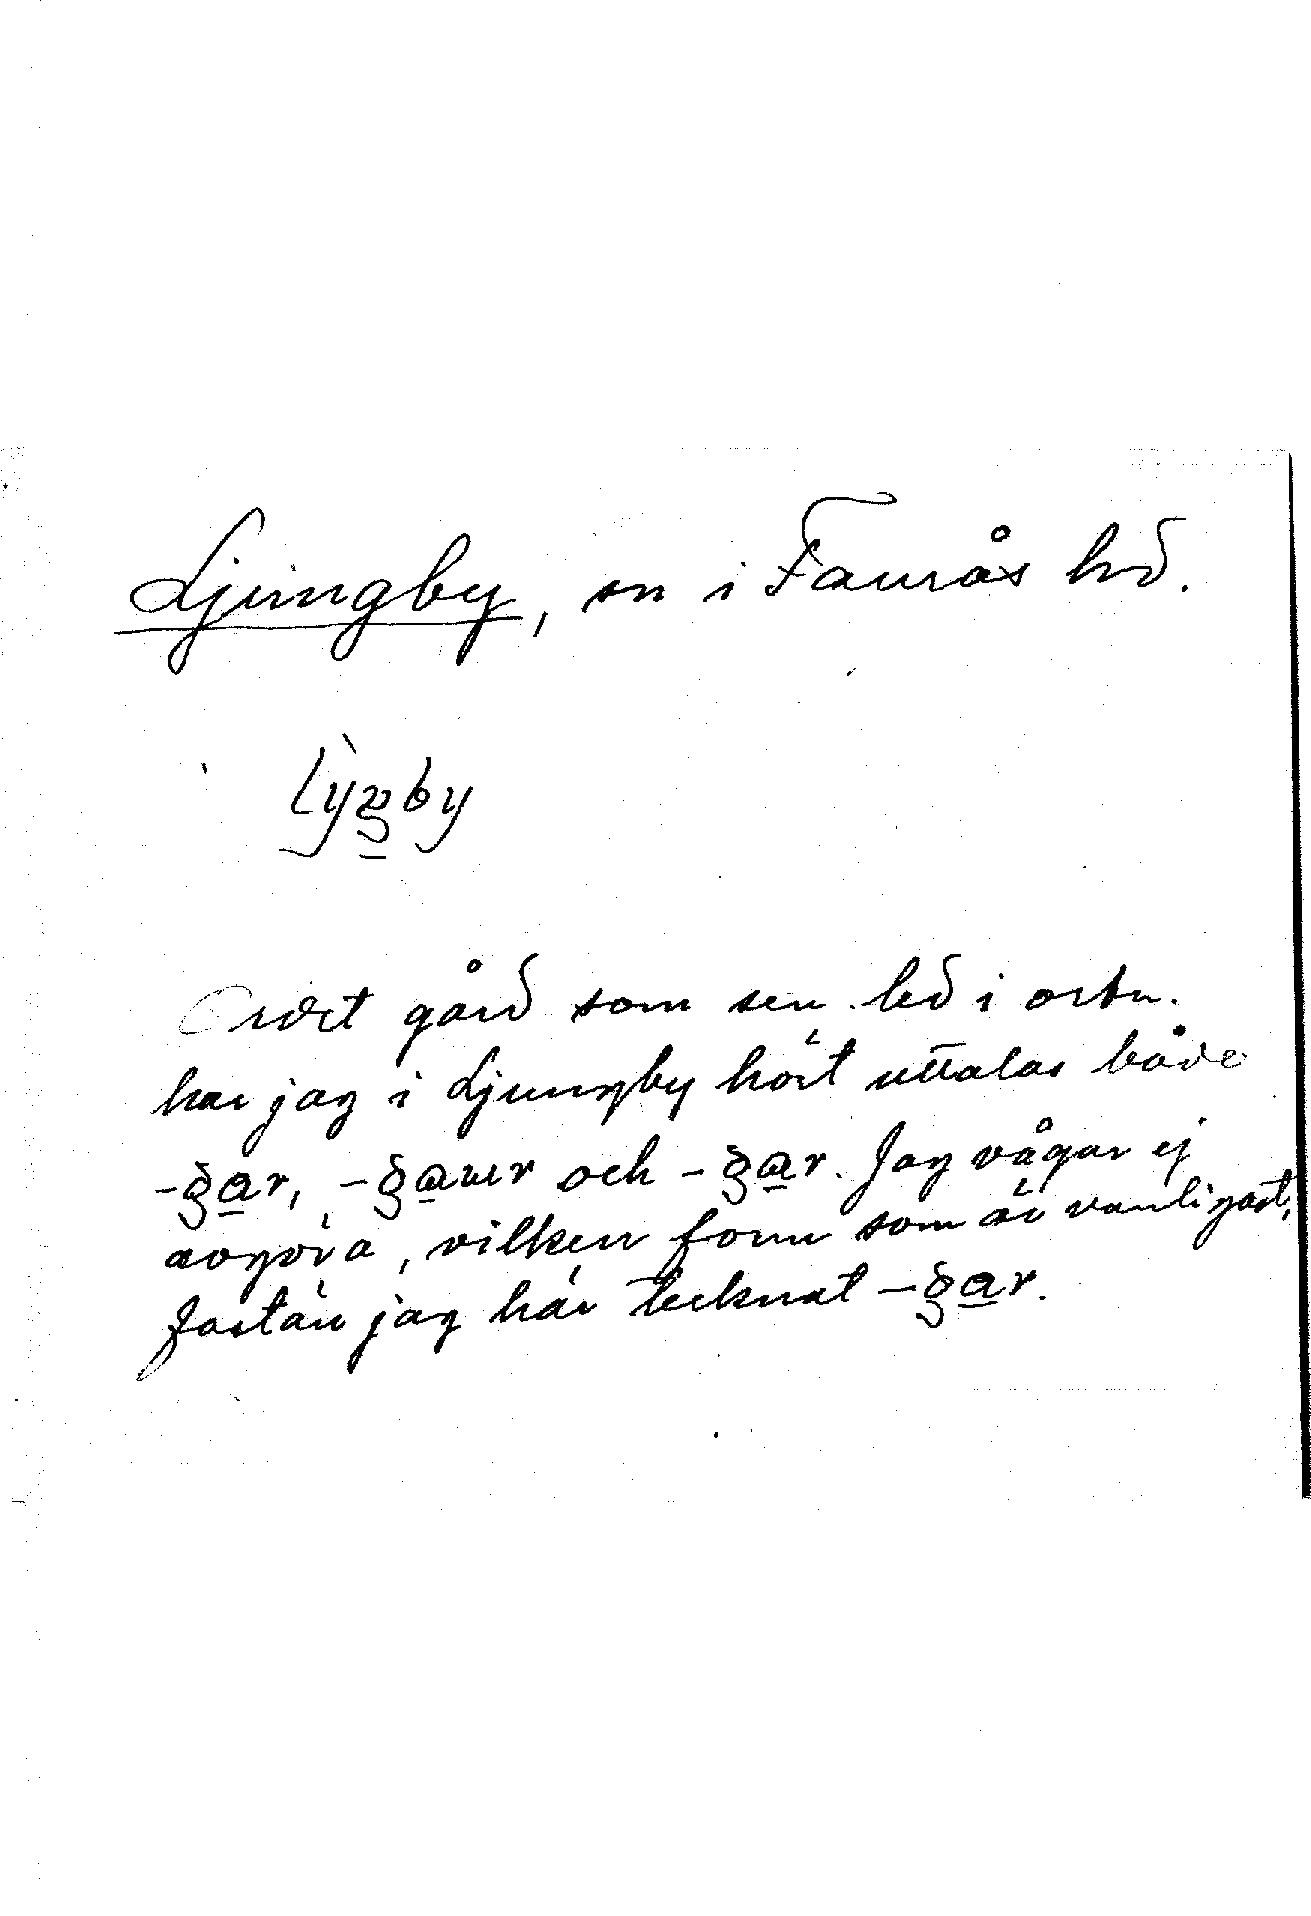 Ljungby, sn i Faurås hd.
Ordet gård som sen. led i ortn.
har jag i Ljungby hört uttalas både
och Jag vågar ej
avgöra, vilken form som är vanligast,
fastän jag här tecknat